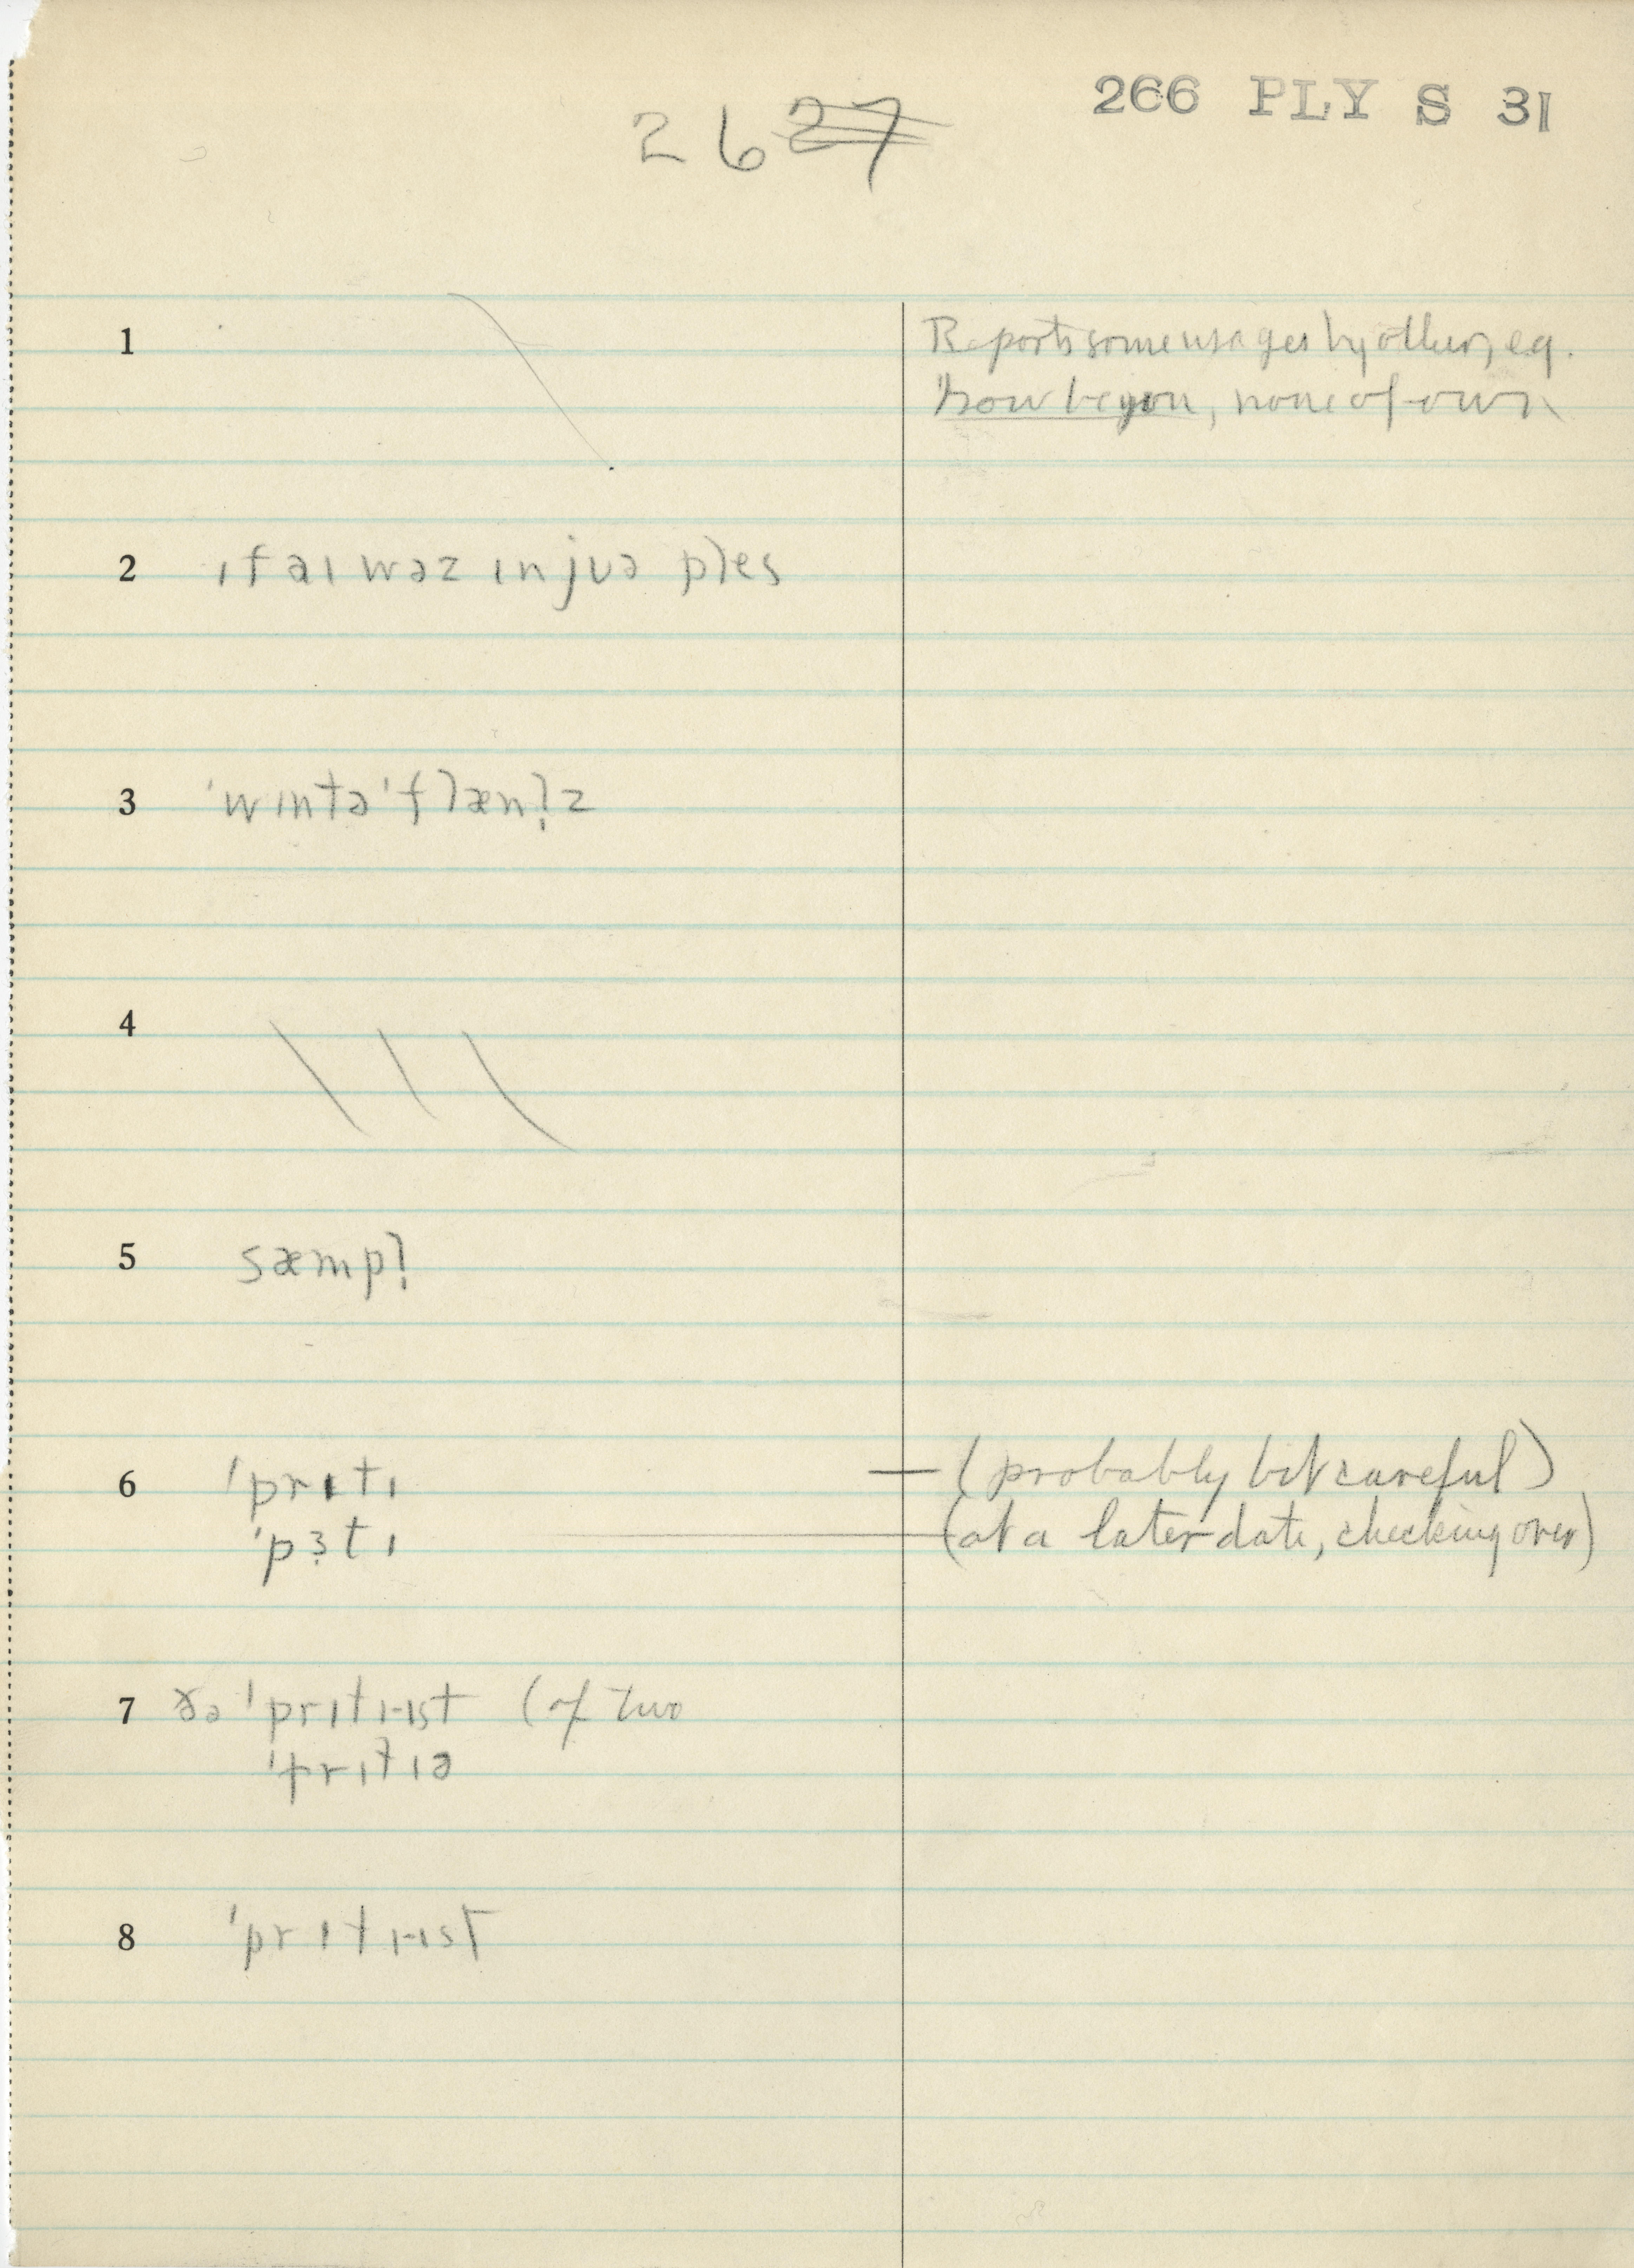 266 PLY S 31
26 27
1
Reports some usages by others, e.g.
how be you, none of own
2 ɪf aɪ wəz ɪn jʊə ples
3 ˈwɪntə ˈflænl̩z
4
5 sæmpl̩
6 ˈprɪtɪ — (probably bit careful)
ˈpɜtɪ — (at a later date, checking over)
7 ðə ˈprɪtɪ-ɪst (of two
ˈprɪtɪə
8 ˈprɪtɪ-ɪst